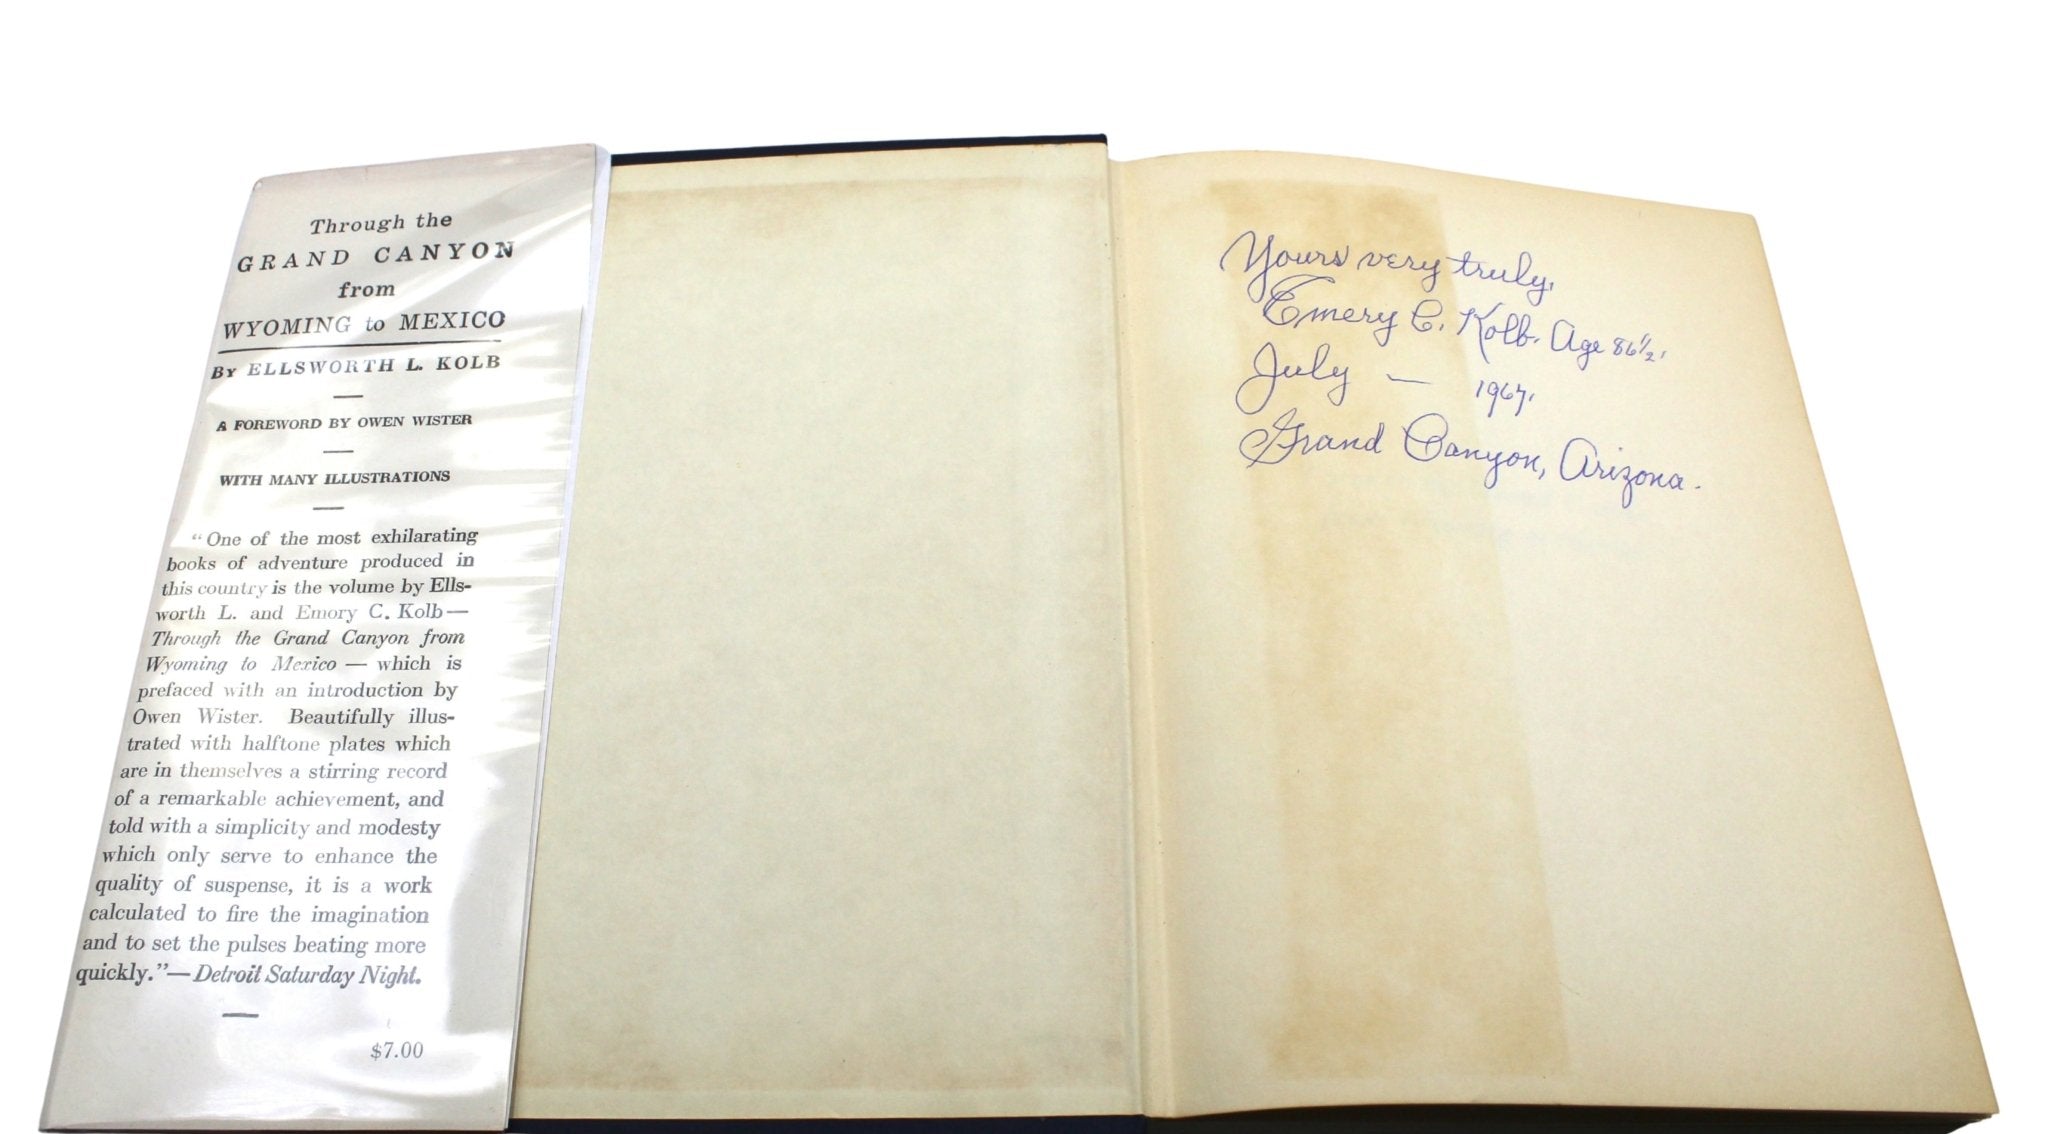 Through the
GRAND CANYON
from
WYOMING to MEXICO
BY ELLSWORTH L. KOLB
A FOREWORD BY OWEN WISTER
WITH MANY ILLUSTRATIONS
"One of the most exhilarating
books of adventure produced in
this country is the volume by Ells-
worth L. and Emory C. Kolb—
Through the Grand Canyon from
Wyoming to Mexico — which is
prefaced with an introduction by
Owen Wister. Beautifully illus-
trated with halftone plates which
are in themselves a stirring record
of a remarkable achievement, and
told with a simplicity and modesty
which only serve to enhance the
quality of suspense, it is a work
calculated to fire the imagination
and to set the pulses beating more
quickly."—Detroit Saturday Night.
$7.00
Yours very truly,
Emery C. Kolb. Age 86½.
July — 1967.
Grand Canyon, Arizona.